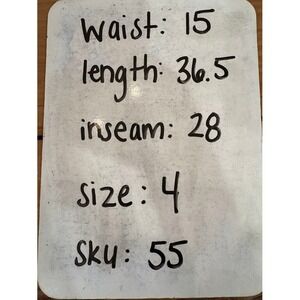 waist: 15
length: 36.5
inseam: 28
size: 4
SKU: 55